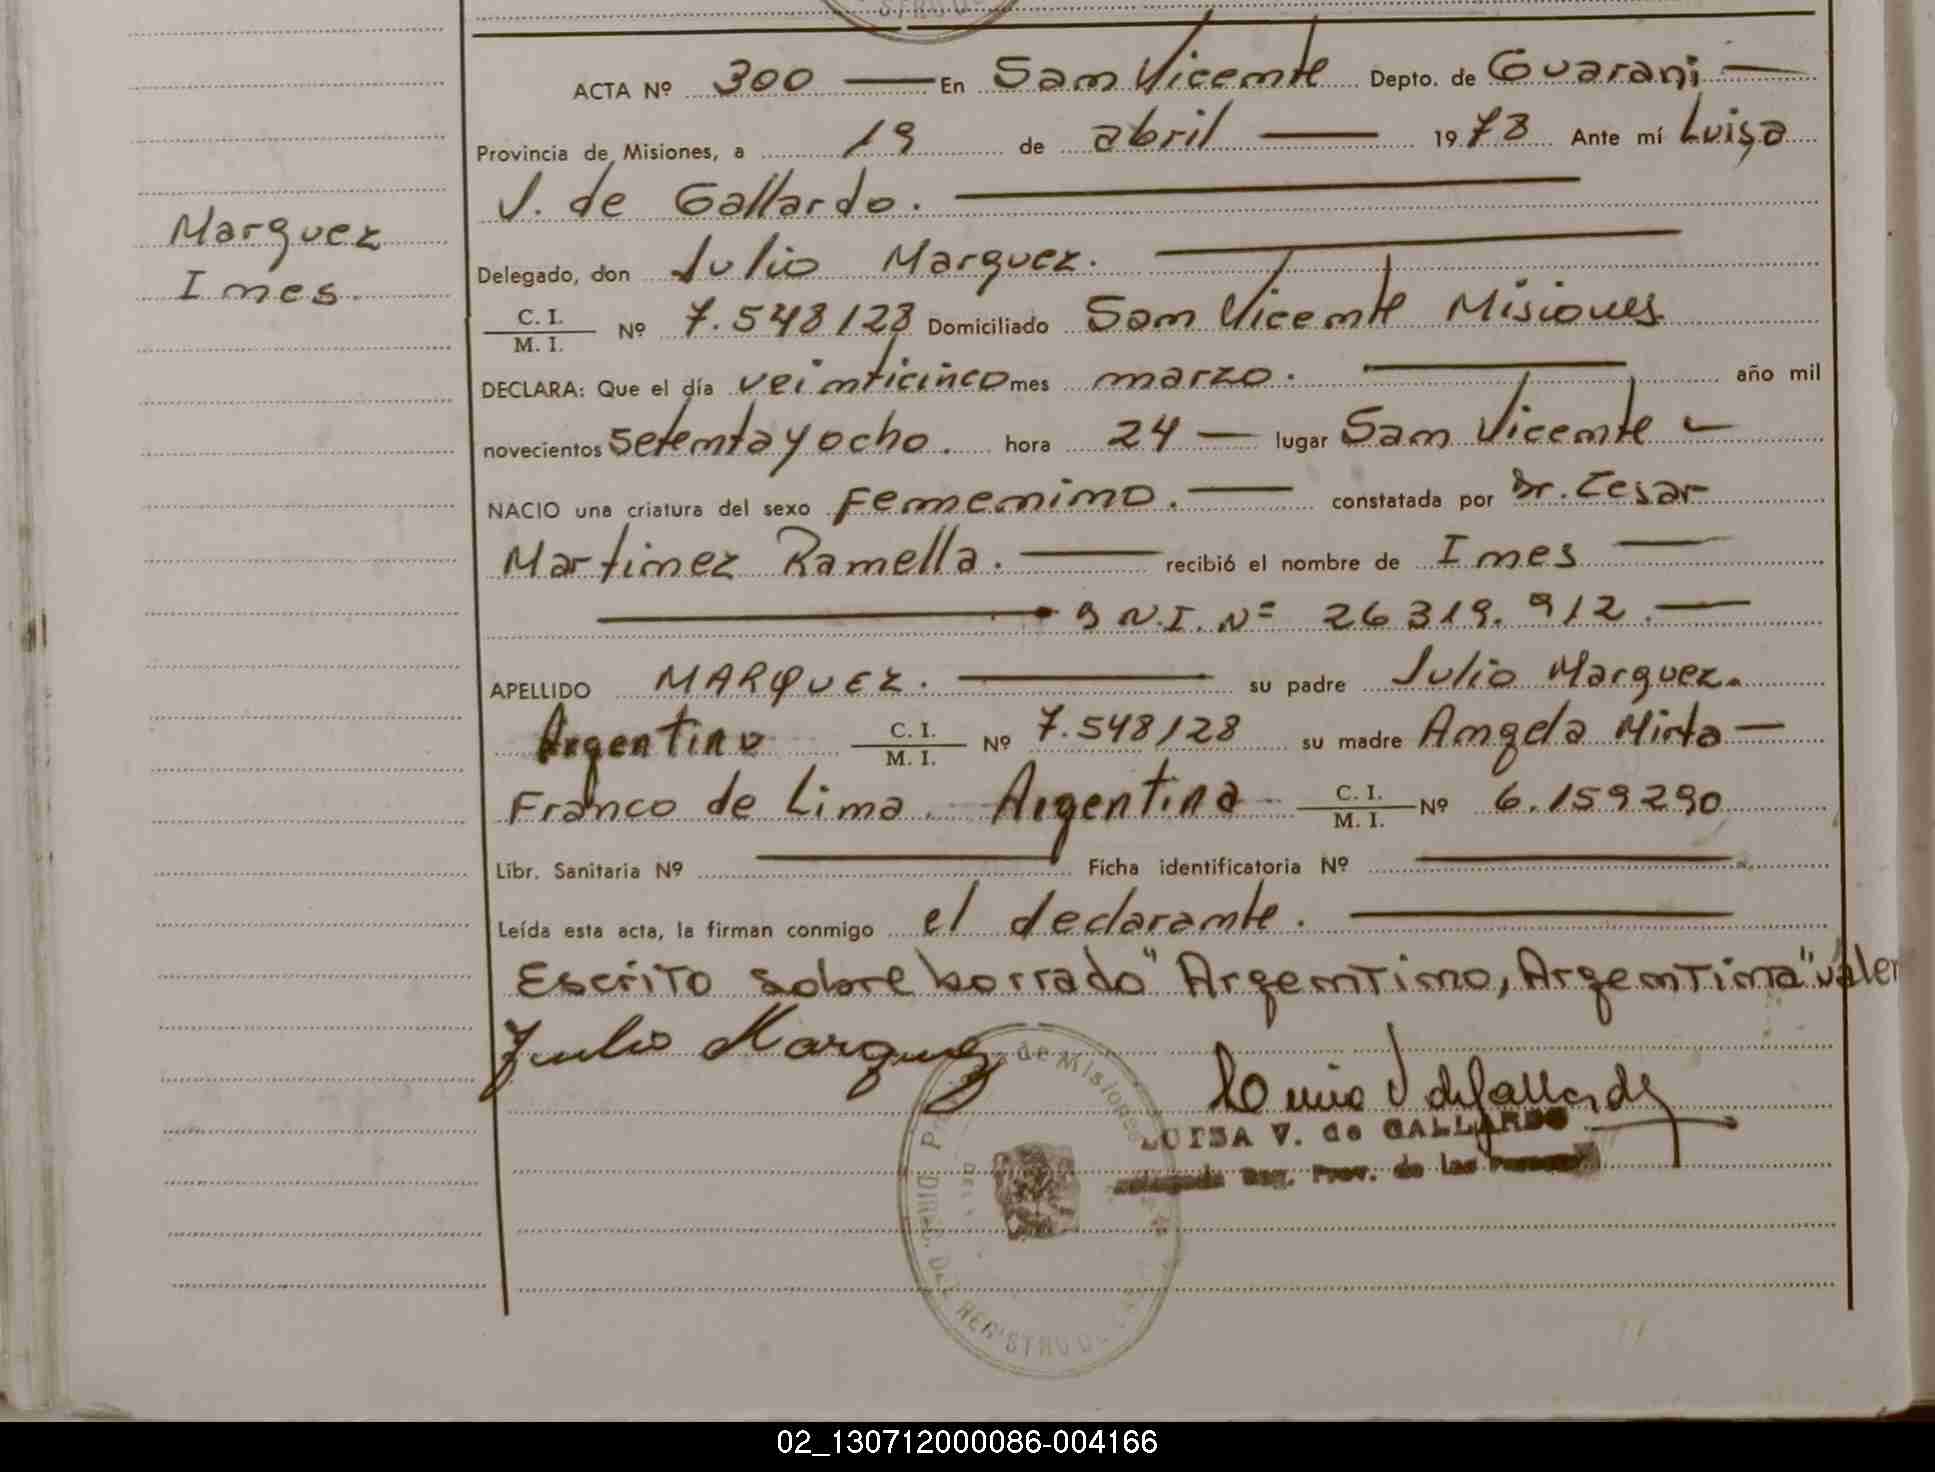 ACTA Nº 300 — En San Vicente Depto. de Guarani —
Provincia de Misiones, a 19 de abril — 1978 Ante mí Luisa
V. de Gallardo.
Marquez
Ines.
Delegado, don Julio Marquez.
C. I.
M. I. Nº 7.548128 Domiciliado San Vicente Misiones
DECLARA: Que el día veinticinco mes marzo. año mil
novecientos setenta y ocho. hora 24 — lugar San Vicente —
NACIO una criatura del sexo Femenino. — constatada por Dr. Cesar
Martinez Ramella. — recibió el nombre de Ines —
D N.I. Nº 26319.912. —
APELLIDO MARQUEZ. — su padre Julio Marquez.
Argentino C. I. M. I. Nº 7.548128 su madre Angela Mirta —
Franco de Lima. Argentina C. I. M. I. Nº 6.159290
Libr. Sanitaria Nº — Ficha identificatoria Nº —
Leída esta acta, la firman conmigo el declarante. —
Escrito sobre borrado "Argentino, Argentina" valen
Julio Marquez
Luisa V de Gallardo
LUISA V. de GALLARDO
Delegada Reg. Prov. de las
de Misiones
DEL REGISTRO DE
02_130712000086-004166